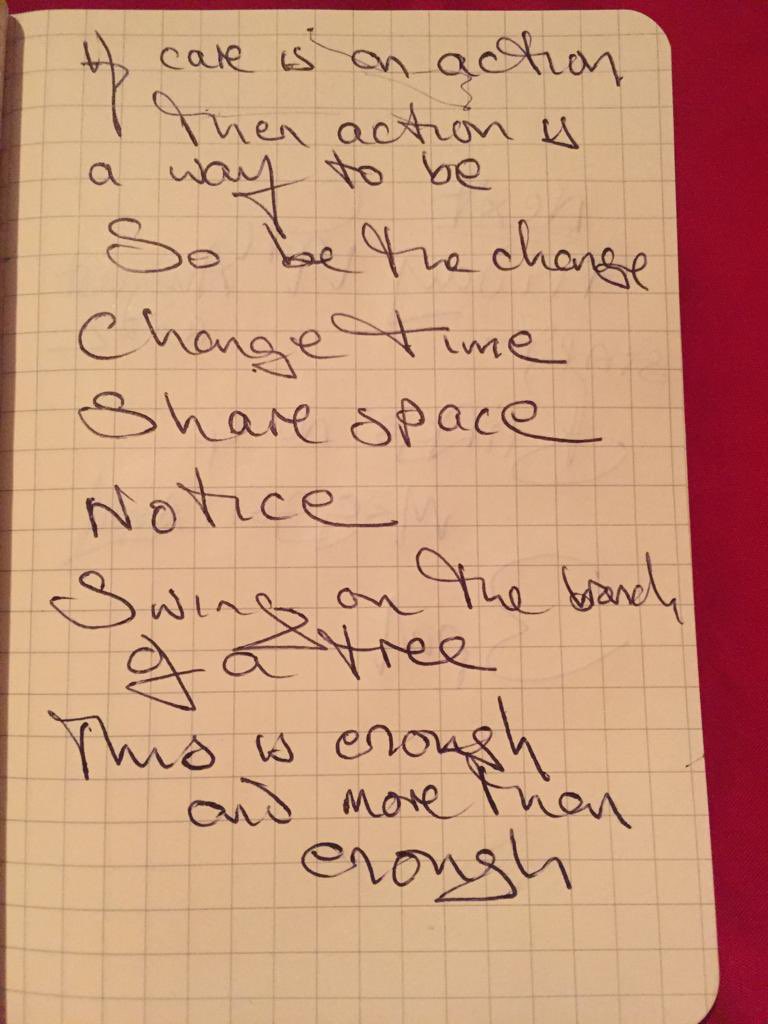 If care is an action
Then action is
a way to be
So be the change
Change time
Share space
Notice
Swing on the branch
of a tree
This is enough
and more than
enough